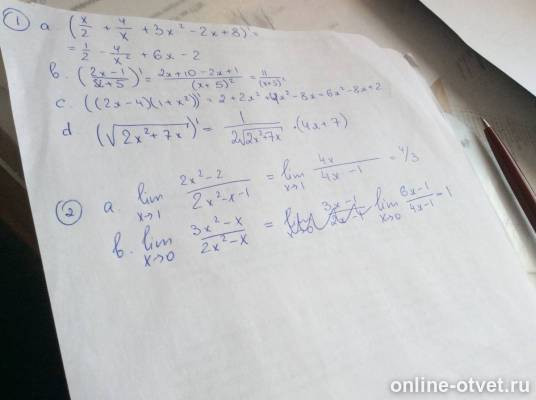 ① a. (x/2 + 4/x + 3x² - 2x + 8)' =
= 1/2 - 4/x² + 6x - 2
b. ((2x-1)/(x+5))' = (2x+10-2x+1)/(x+5)² = 11/(x+5)²
c. ((2x-4)(1+x²))' = 2+2x²+4x²-8x = 6x²-8x+2
d (√(2x²+7x))' = 1/(2√(2x²+7x)) · (4x+7)
② a. lim x→1 (2x²-2)/(2x²-x-1) = lim x→1 4x/(4x-1) = 4/3
b. lim x→0 (3x²-x)/(2x²-x) = lim x→0 (6x-1)/(4x-1) = 1
online-otvet.ru